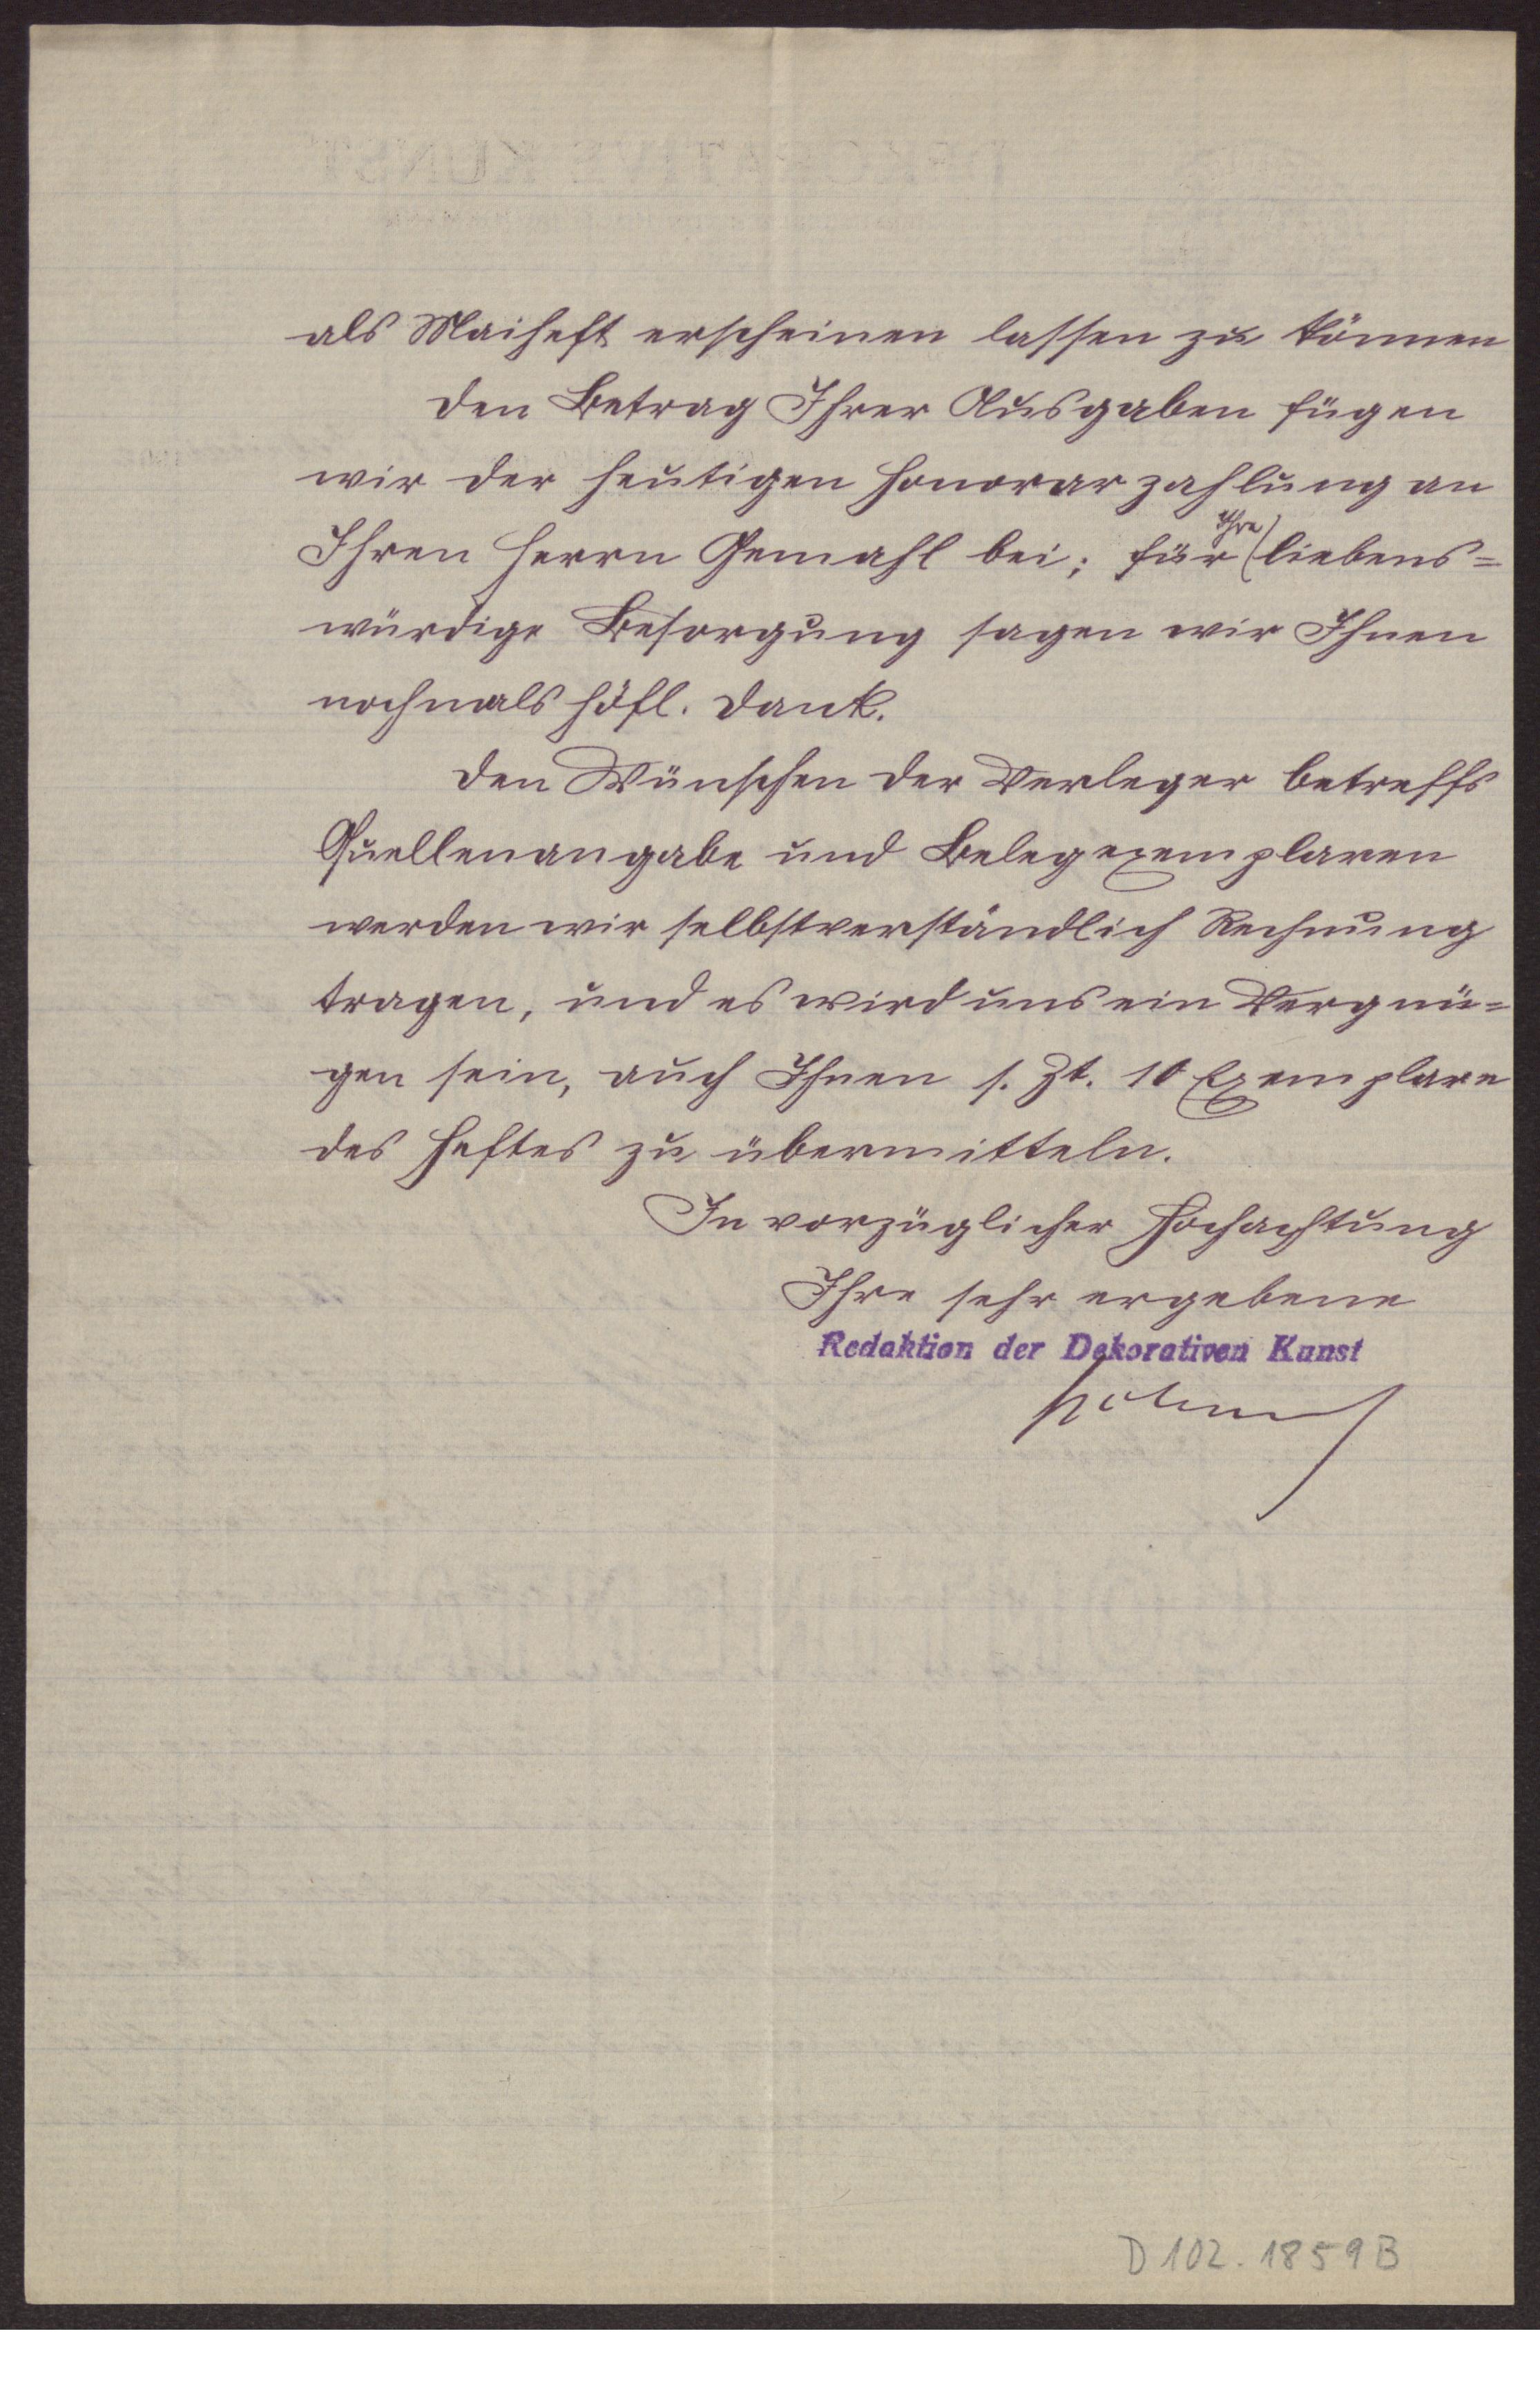 als Maiheft erscheinen lassen zu können
Den Betrag Ihrer Ausgaben fügen
wir der heutigen Honorarzahlung an
Ihren Herrn Gemahl bei; für Ihre liebens=
würdige Besorgung sagen wir Ihnen
nochmals höfl. Dank.
Den Wünschen der Verleger betreffs
Quellenangabe und Belegexemplaren
werden wir selbstverständlich Rechnung
tragen, und es wird uns ein Vergnü=
gen sein, auch Ihnen s. Zt. 10 Exemplare
des Heftes zu übermitteln.
In vorzüglicher Hochachtung
Ihre sehr ergebene
Redaktion der Dekorativen Kunst
D 102.1859 B